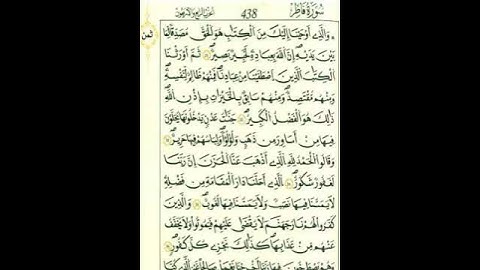 سورة فاطر
438
حزب الرابع والأربعون
ثمن
وَالَّذِي أَوْحَيْنَا إِلَيْكَ مِنَ الْكِتَابِ هُوَ الْحَقُّ مُصَدِّقًا لِّمَا
بَيْنَ يَدَيْهِ إِنَّ اللَّهَ بِعِبَادِهِ لَخَبِيرٌ بَصِيرٌ ثُمَّ أَوْرَثْنَا
الْكِتَابَ الَّذِينَ اصْطَفَيْنَا مِنْ عِبَادِنَا فَمِنْهُمْ ظَالِمٌ لِّنَفْسِهِ
وَمِنْهُم مُّقْتَصِدٌ وَمِنْهُمْ سَابِقٌ بِالْخَيْرَاتِ بِإِذْنِ اللَّهِ
ذَلِكَ هُوَ الْفَضْلُ الْكَبِيرُ جَنَّاتُ عَدْنٍ يَدْخُلُونَهَا يُحَلَّوْنَ
فِيهَا مِنْ أَسَاوِرَ مِن ذَهَبٍ وَلُؤْلُؤًا وَلِبَاسُهُمْ فِيهَا حَرِيرٌ
وَقَالُوا الْحَمْدُ لِلَّهِ الَّذِي أَذْهَبَ عَنَّا الْحَزَنَ إِنَّ رَبَّنَا
لَغَفُورٌ شَكُورٌ الَّذِي أَحَلَّنَا دَارَ الْمُقَامَةِ مِن فَضْلِهِ
لَا يَمَسُّنَا فِيهَا نَصَبٌ وَلَا يَمَسُّنَا فِيهَا لُغُوبٌ وَالَّذِينَ
كَفَرُوا لَهُمْ نَارُ جَهَنَّمَ لَا يُقْضَى عَلَيْهِمْ فَيَمُوتُوا وَلَا يُخَفَّفُ
عَنْهُم مِّنْ عَذَابِهَا كَذَلِكَ نَجْزِي كُلَّ كَفُورٍ
وَهُمْ يَصْطَرِخُونَ فِيهَا رَبَّنَا أَخْرِجْنَا نَعْمَلْ صَالِحًا غَيْرَ الَّذِي كُنَّا